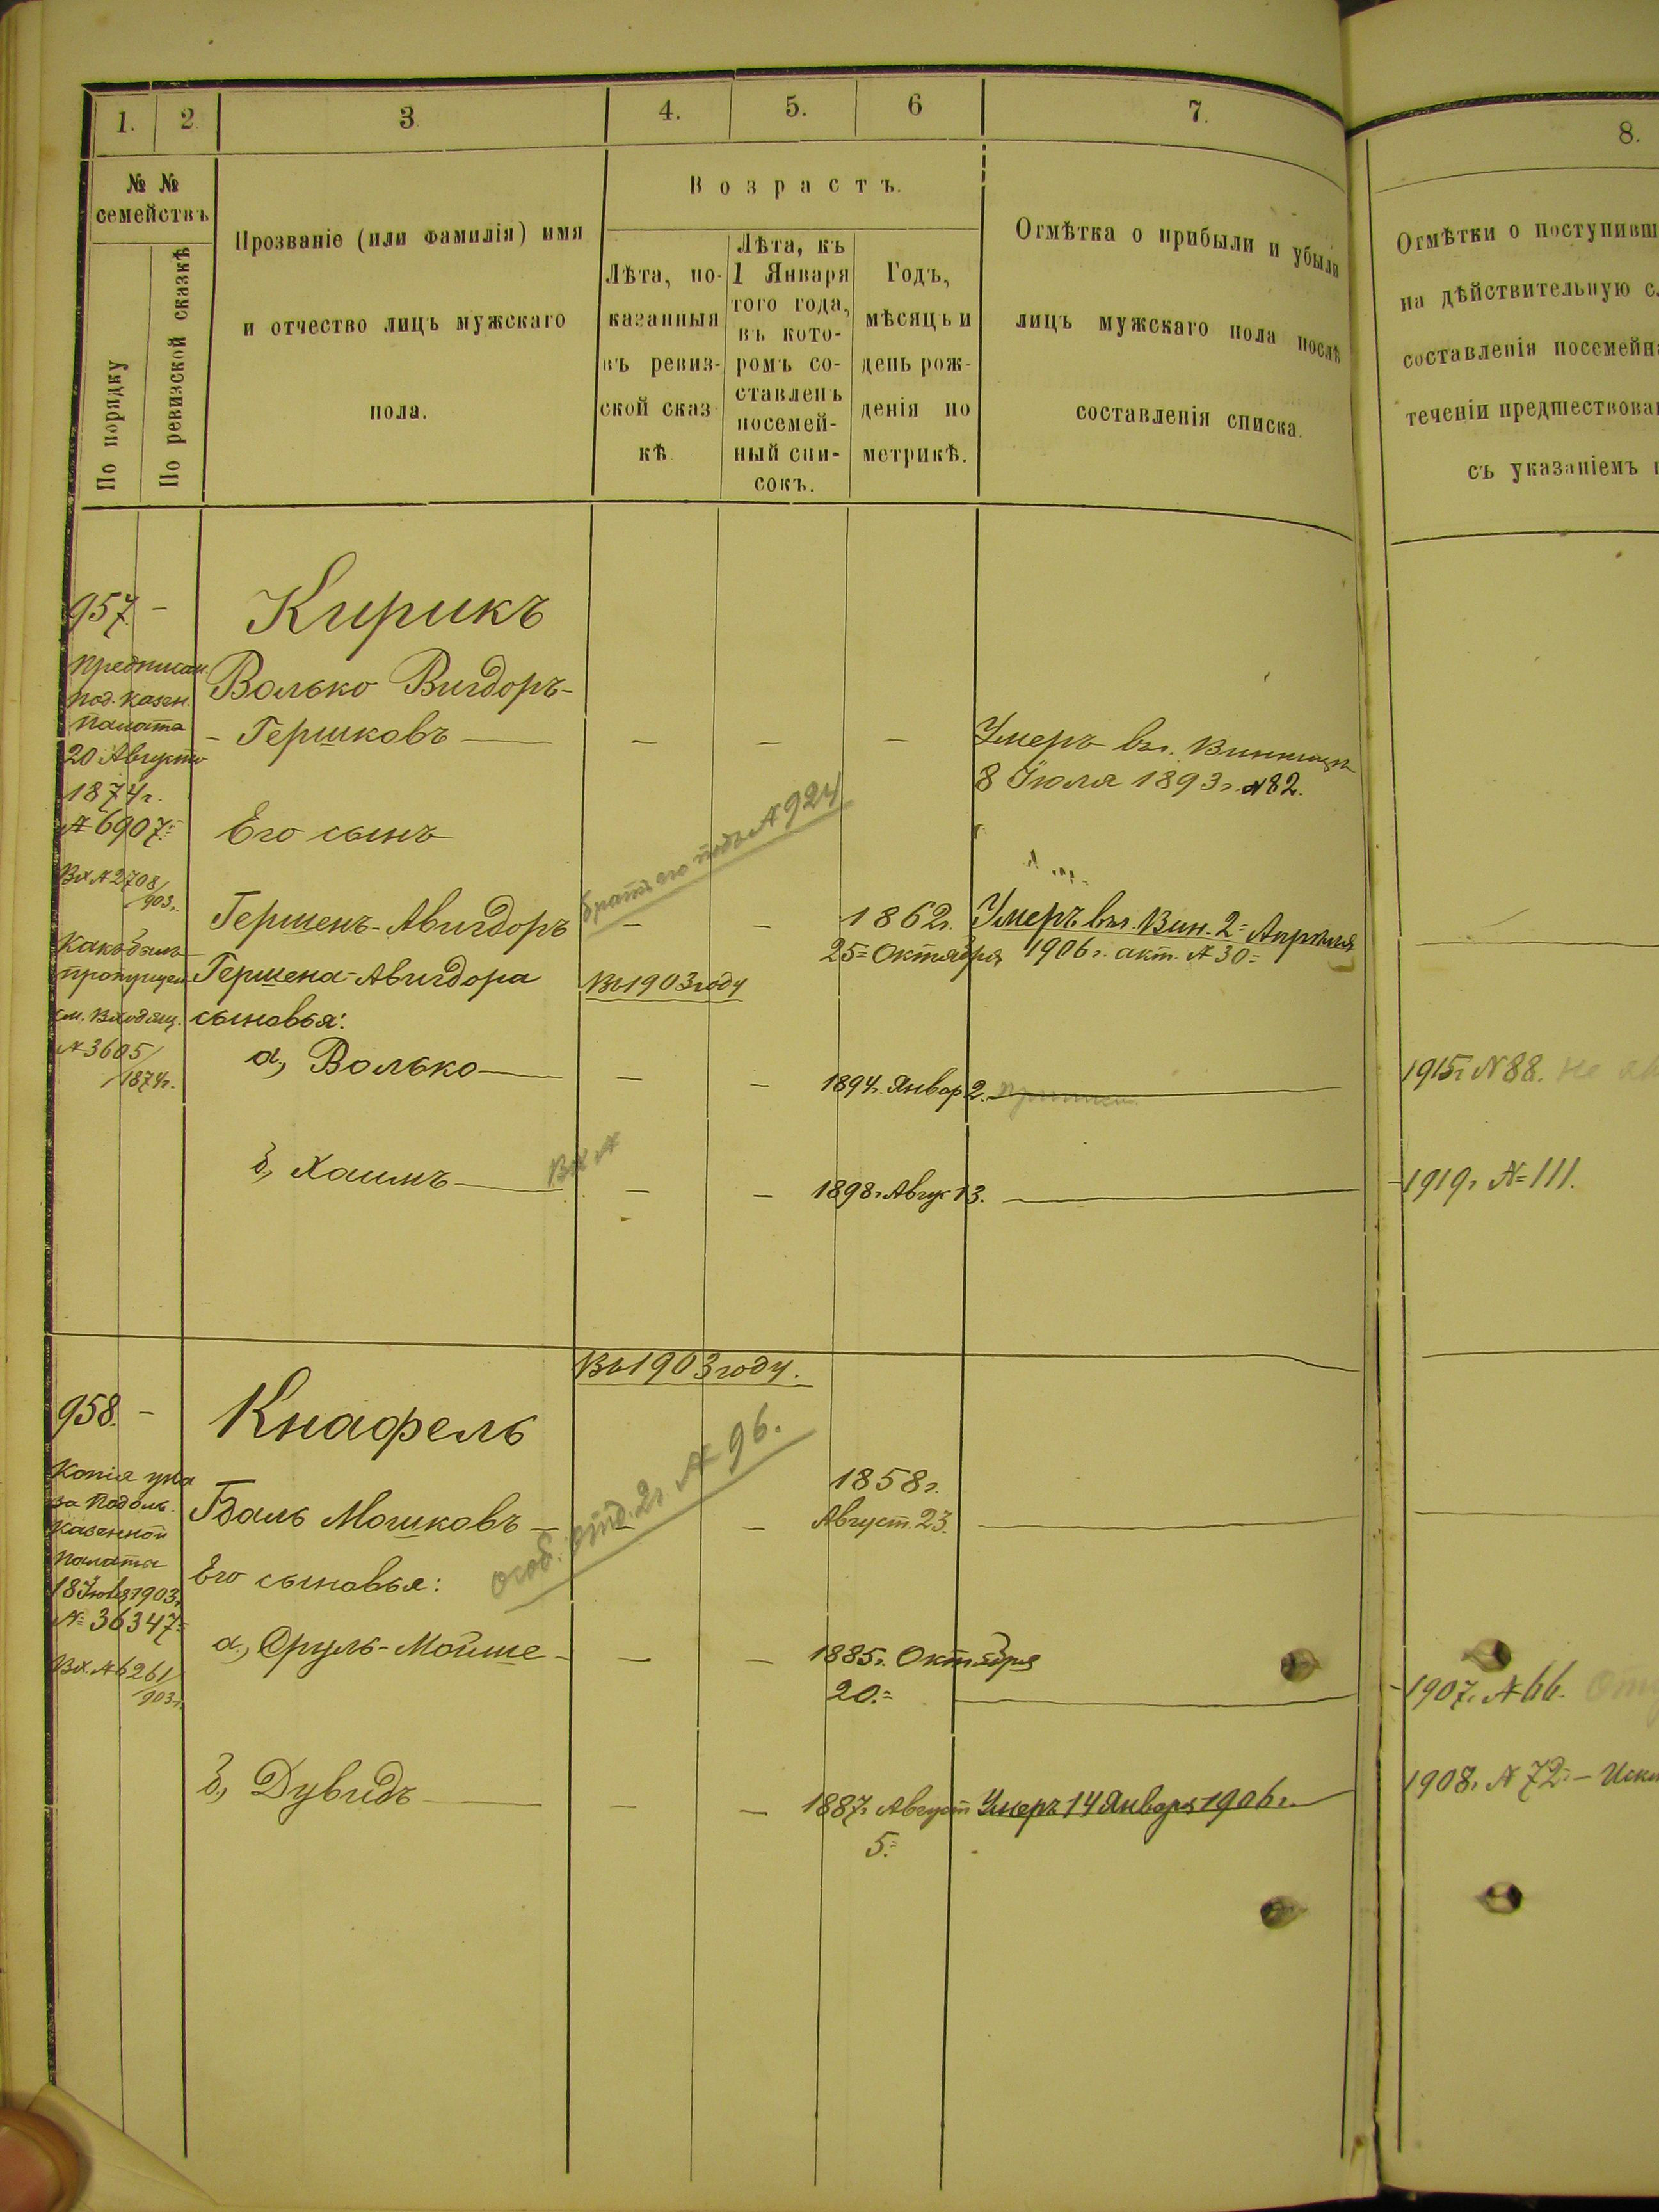 1. 2 3. 4. 5. 6 7. 8.
№ №
семействъ
По порядку
По ревизской сказкѣ
Прозваніе (или фамилія) имя
и отчество лицъ мужскаго
пола.
Возрастъ.
Лѣта, по-
казанныя
въ ревиз-
ской сказ
кѣ
Лѣта, къ
1 Января
того года,
въ кото-
ромъ со-
ставленъ
посемей-
ный спи-
сокъ.
Годъ,
мѣсяцъ и
день рож-
денія по
метрикѣ.
Отмѣтка о прибыли и убыли
лицъ мужскаго пола послѣ
составленія списка.
Отмѣтки о поступивш
на дѣйствительную с
составленія посемейн
теченіи предшествова
съ указаніемъ
957. –
Предписан.
под. казен.
палата
20 Августа
1874 г.
№ 6907.
Вх № 2708/
903 г.
см. Входящ.
№ 3605/
1874 г.
Кирикъ
Волько Вигдоръ-
- Гершковъ — — — —
Умеръ въ г. Винницѣ
8 Іюля 1893 г. № 82.
Его сынъ
братъ его подъ № 924
Гершенъ-Авигдоръ — — 1862 г.
25 Октября
Умеръ въ г. Вин. 2 Апрѣля
1906 г. акт. № 30
Гершена-Авигдора
Въ 1903 году
сыновья:
а, Волько — — — 1894 г. Январ 2.
1915 г. № 88. не
б, Хаимъ — — — 1898 г. Авгус 13.
Вх №
1919 г. № 111.
Въ 1903 году.
958. –
Копія ука
за Подоль.
казенной
палата
1903 г.
№ 36347
Вх. № 6261/
903 г.
Кнафель
особ. отд. 2 г. № 96.
Баль Мошковъ — — —
1858 г.
Август. 23.
Его сыновья:
а, Сруль-Мойше — — — 1885 г. Октября
20.
1907 г. № 66.
б, Дувидъ — — — 1887 г. Август
5.
Умеръ 14 Января 1906 г.
1908 г. № 72 –